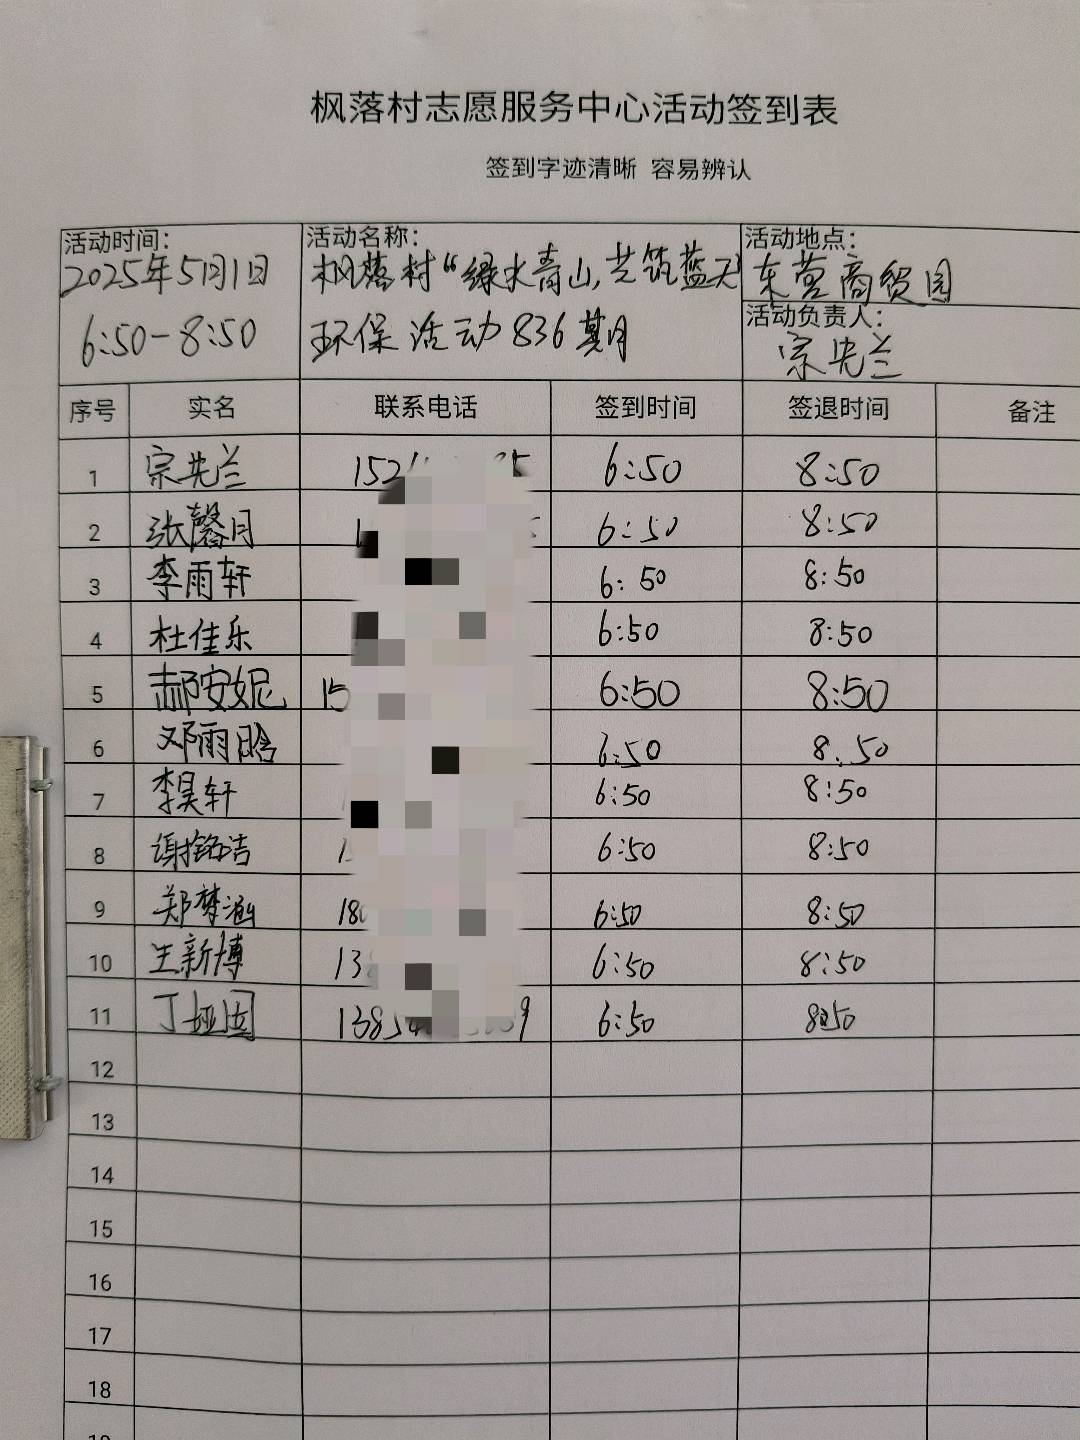 枫落村志愿服务中心活动签到表
签到字迹清晰 容易辨认
活动时间：
2025年5月1日
6:50-8:50
活动名称：
枫落村“绿水青山,共筑蓝天
环保活动836期
活动地点：
东营商贸园
活动负责人：
宗先兰
序号 实名 联系电话 签到时间 签退时间 备注
1 宗先兰 152 6:50 8:50
2 张馨月 6:50 8:50
3 李雨轩 6:50 8:50
4 杜佳乐 6:50 8:50
5 郝安妮 15 6:50 8:50
6 邓雨晗 6:50 8.50
7 李昊轩 6:50 8:50
8 谢铭洁 6:50 8:50
9 郑梦涵 180 6:50 8:50
10 王新博 13 6:50 8:50
11 丁娅囡 1385 9 6:50 8:50
12
13
14
15
16
17
18
19